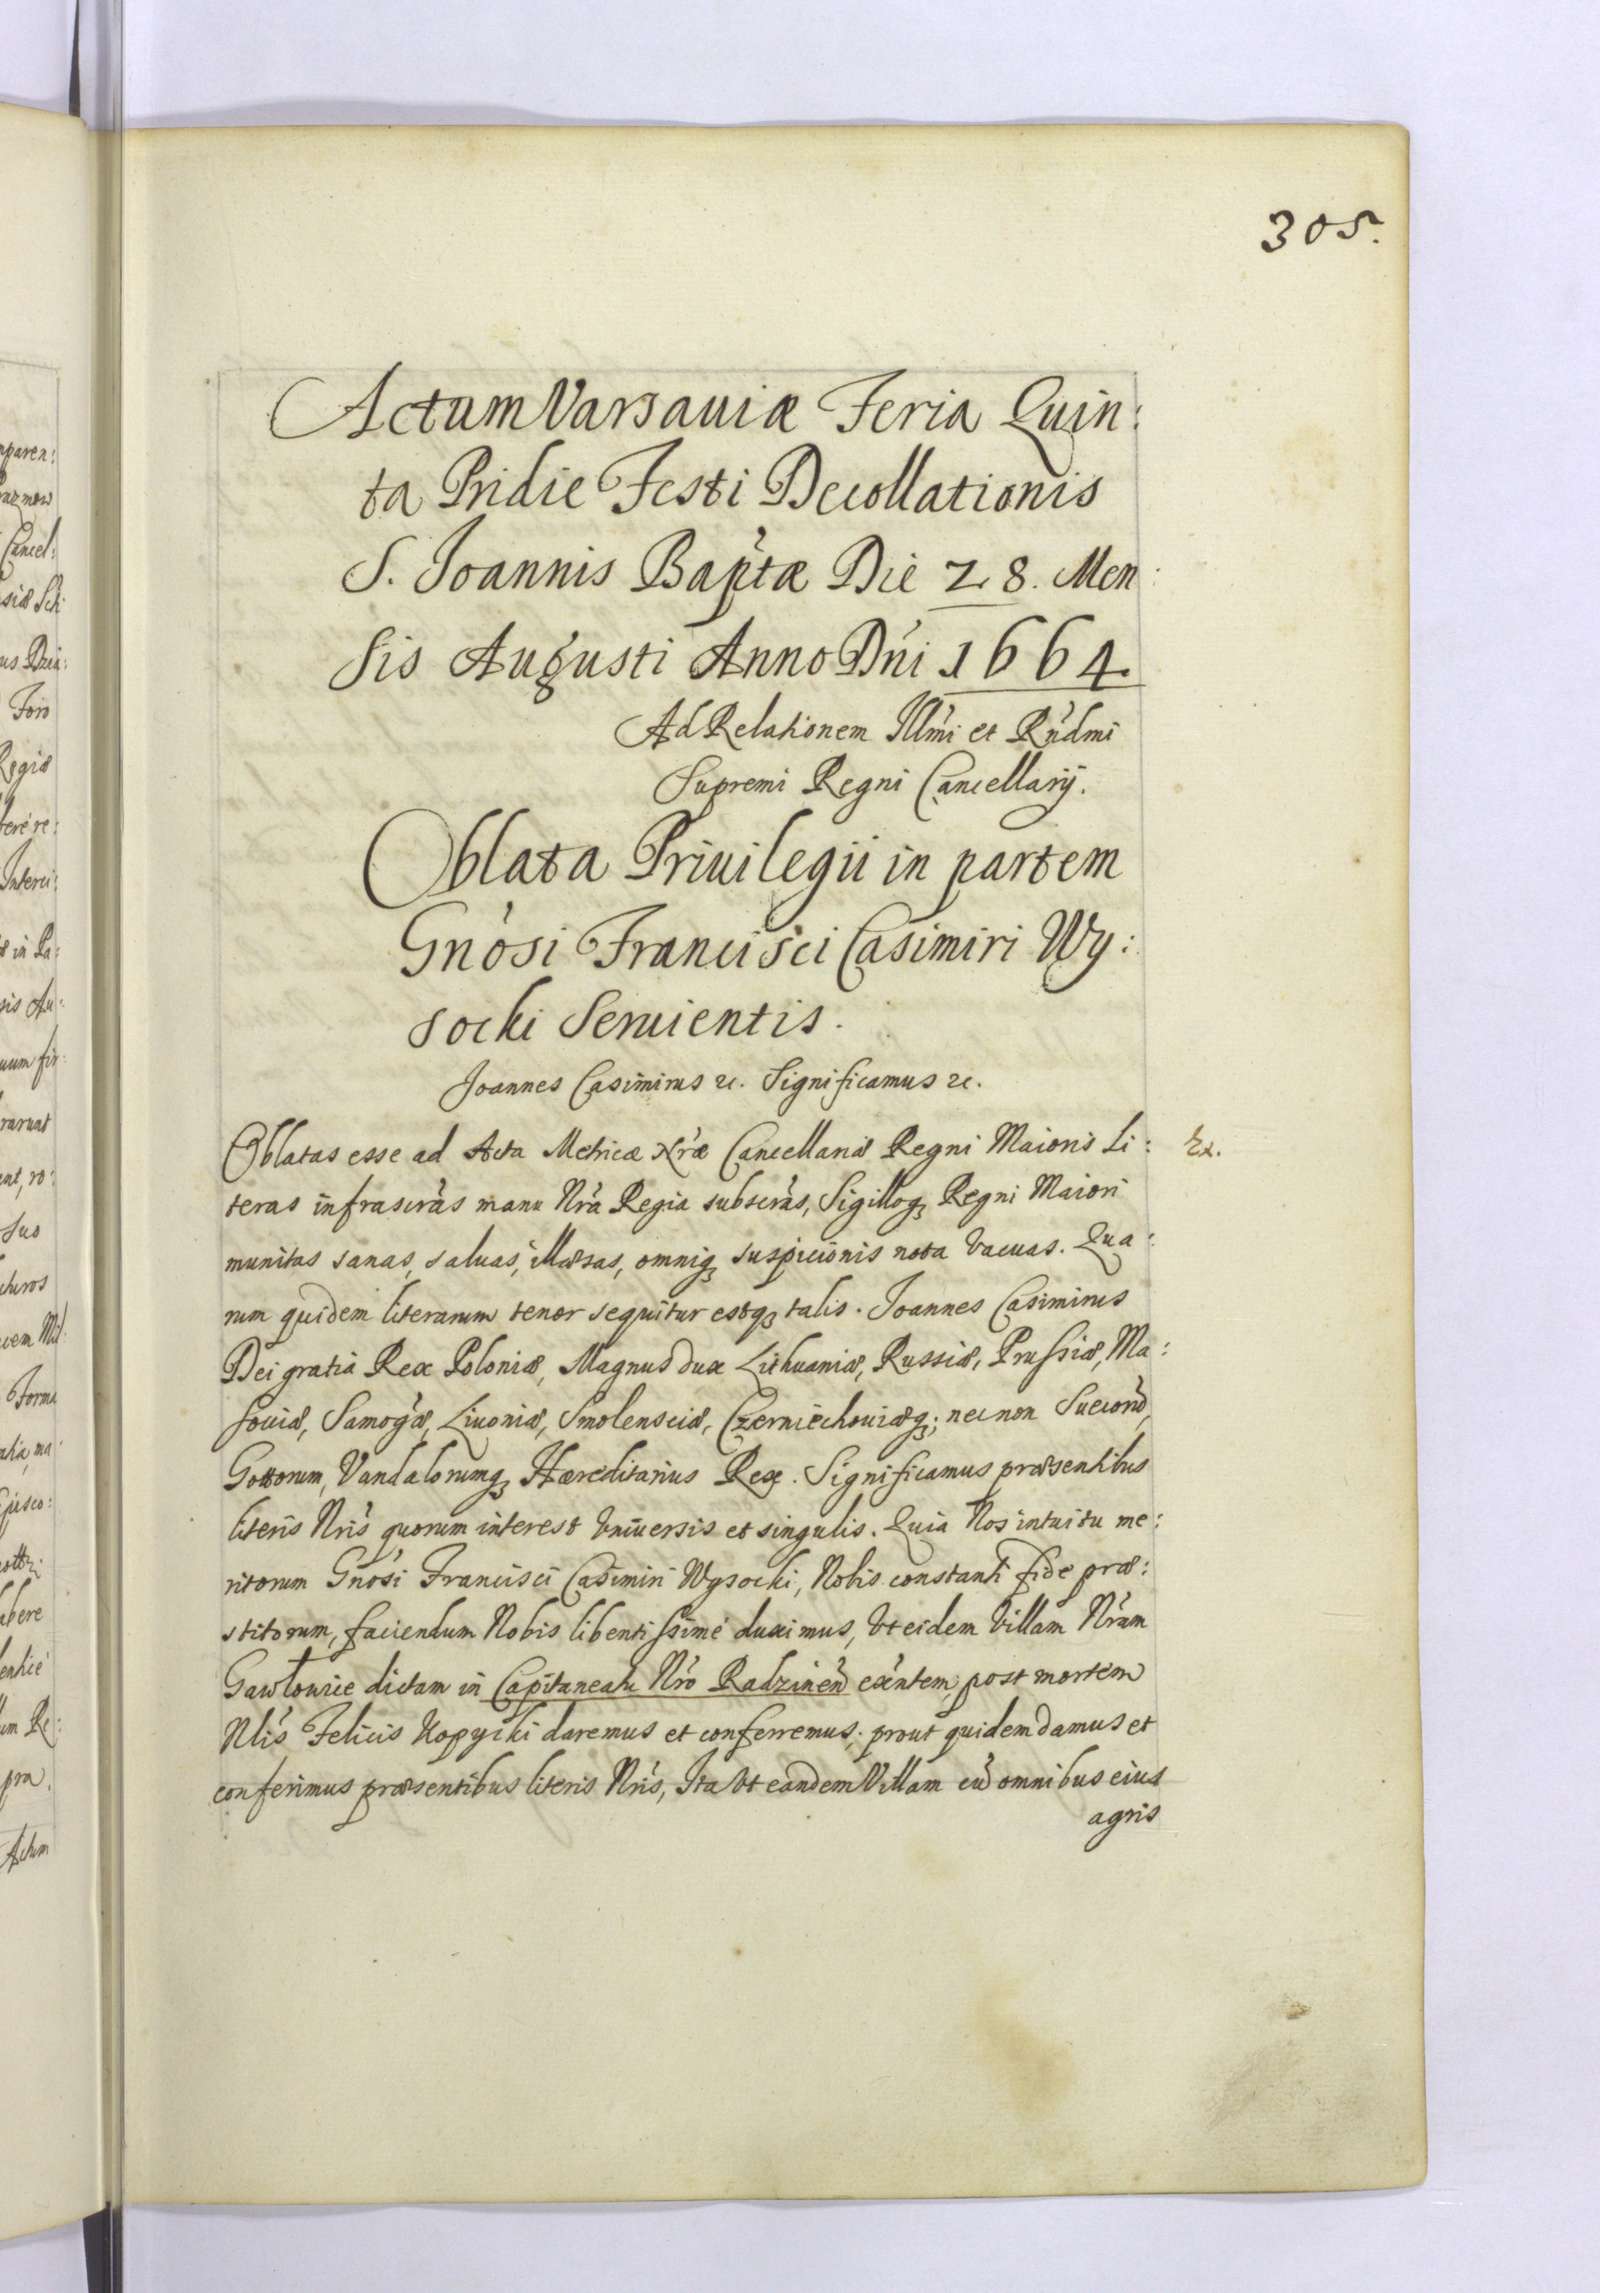 305.
Actum Varsauiæ Feria Quin:
ta Pridie Festi Decollationis
S. Joannis Baptæ Die 28. Men:
sis Augusti Anno Dni 1664.
Ad Relationem Illmi et Rndmi
Supremi Regni Cancellarij.
Oblata Priuilegii in partem
Gnosi Francisci Casimiri Wy:
socki Seruientis.
Joannes Casimirus &c. Significamus &c.
Oblatas esse ad Acta Metricæ Nræ Cancellariæ Regni Maioris Li: Ex.
teras infrascras manu Nra Regia subscras, Sigilloq Regni Maiori
munitas sanas, saluas, illæsas, omniq suspicionis nota vacuas. Qua:
rum quidem literarum tenor sequitur estq talis. Joannes Casimirus
Dei gratia Rex Poloniæ, Magnus dux Lithuaniæ, Russiæ, Prussiæ, Ma:
souiæ, Samogæ, Liuoniæ, Smolensciæ, Czerniechouiæq; nec non Suecorũ,
Gottorum, Vandalorumq Hæreditarius Rex. Significamus præsentibus
literis Nris quorum interest Vniuersis et singulis. Quia Nos intuitu me:
ritorum Gnosi Francisci Casimiri Wysocki, Nobis constanti fide præ:
stitorum, faciendum Nobis libentissime duximus, Vt eidem Villam Nram
Gawłowice dictam in Capitaneatu Nro Radzineñ exñtem, post mortem
Nlis Felicis Kopycki daremus et conferremus; prout quidem damus et
conferimus præsentibus literis Nris, Ita Vt eandem Villam cũ omnibus eius
agris